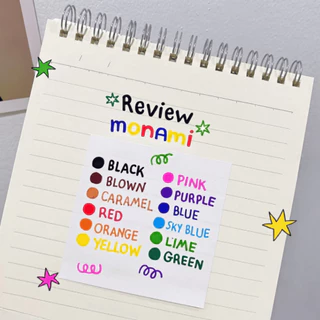 Review
monami
BLACK
BLOWN
CARAMEL
RED
ORANGE
YELLOW
PINK
PURPLE
BLUE
SKY BLUE
LIME
GREEN